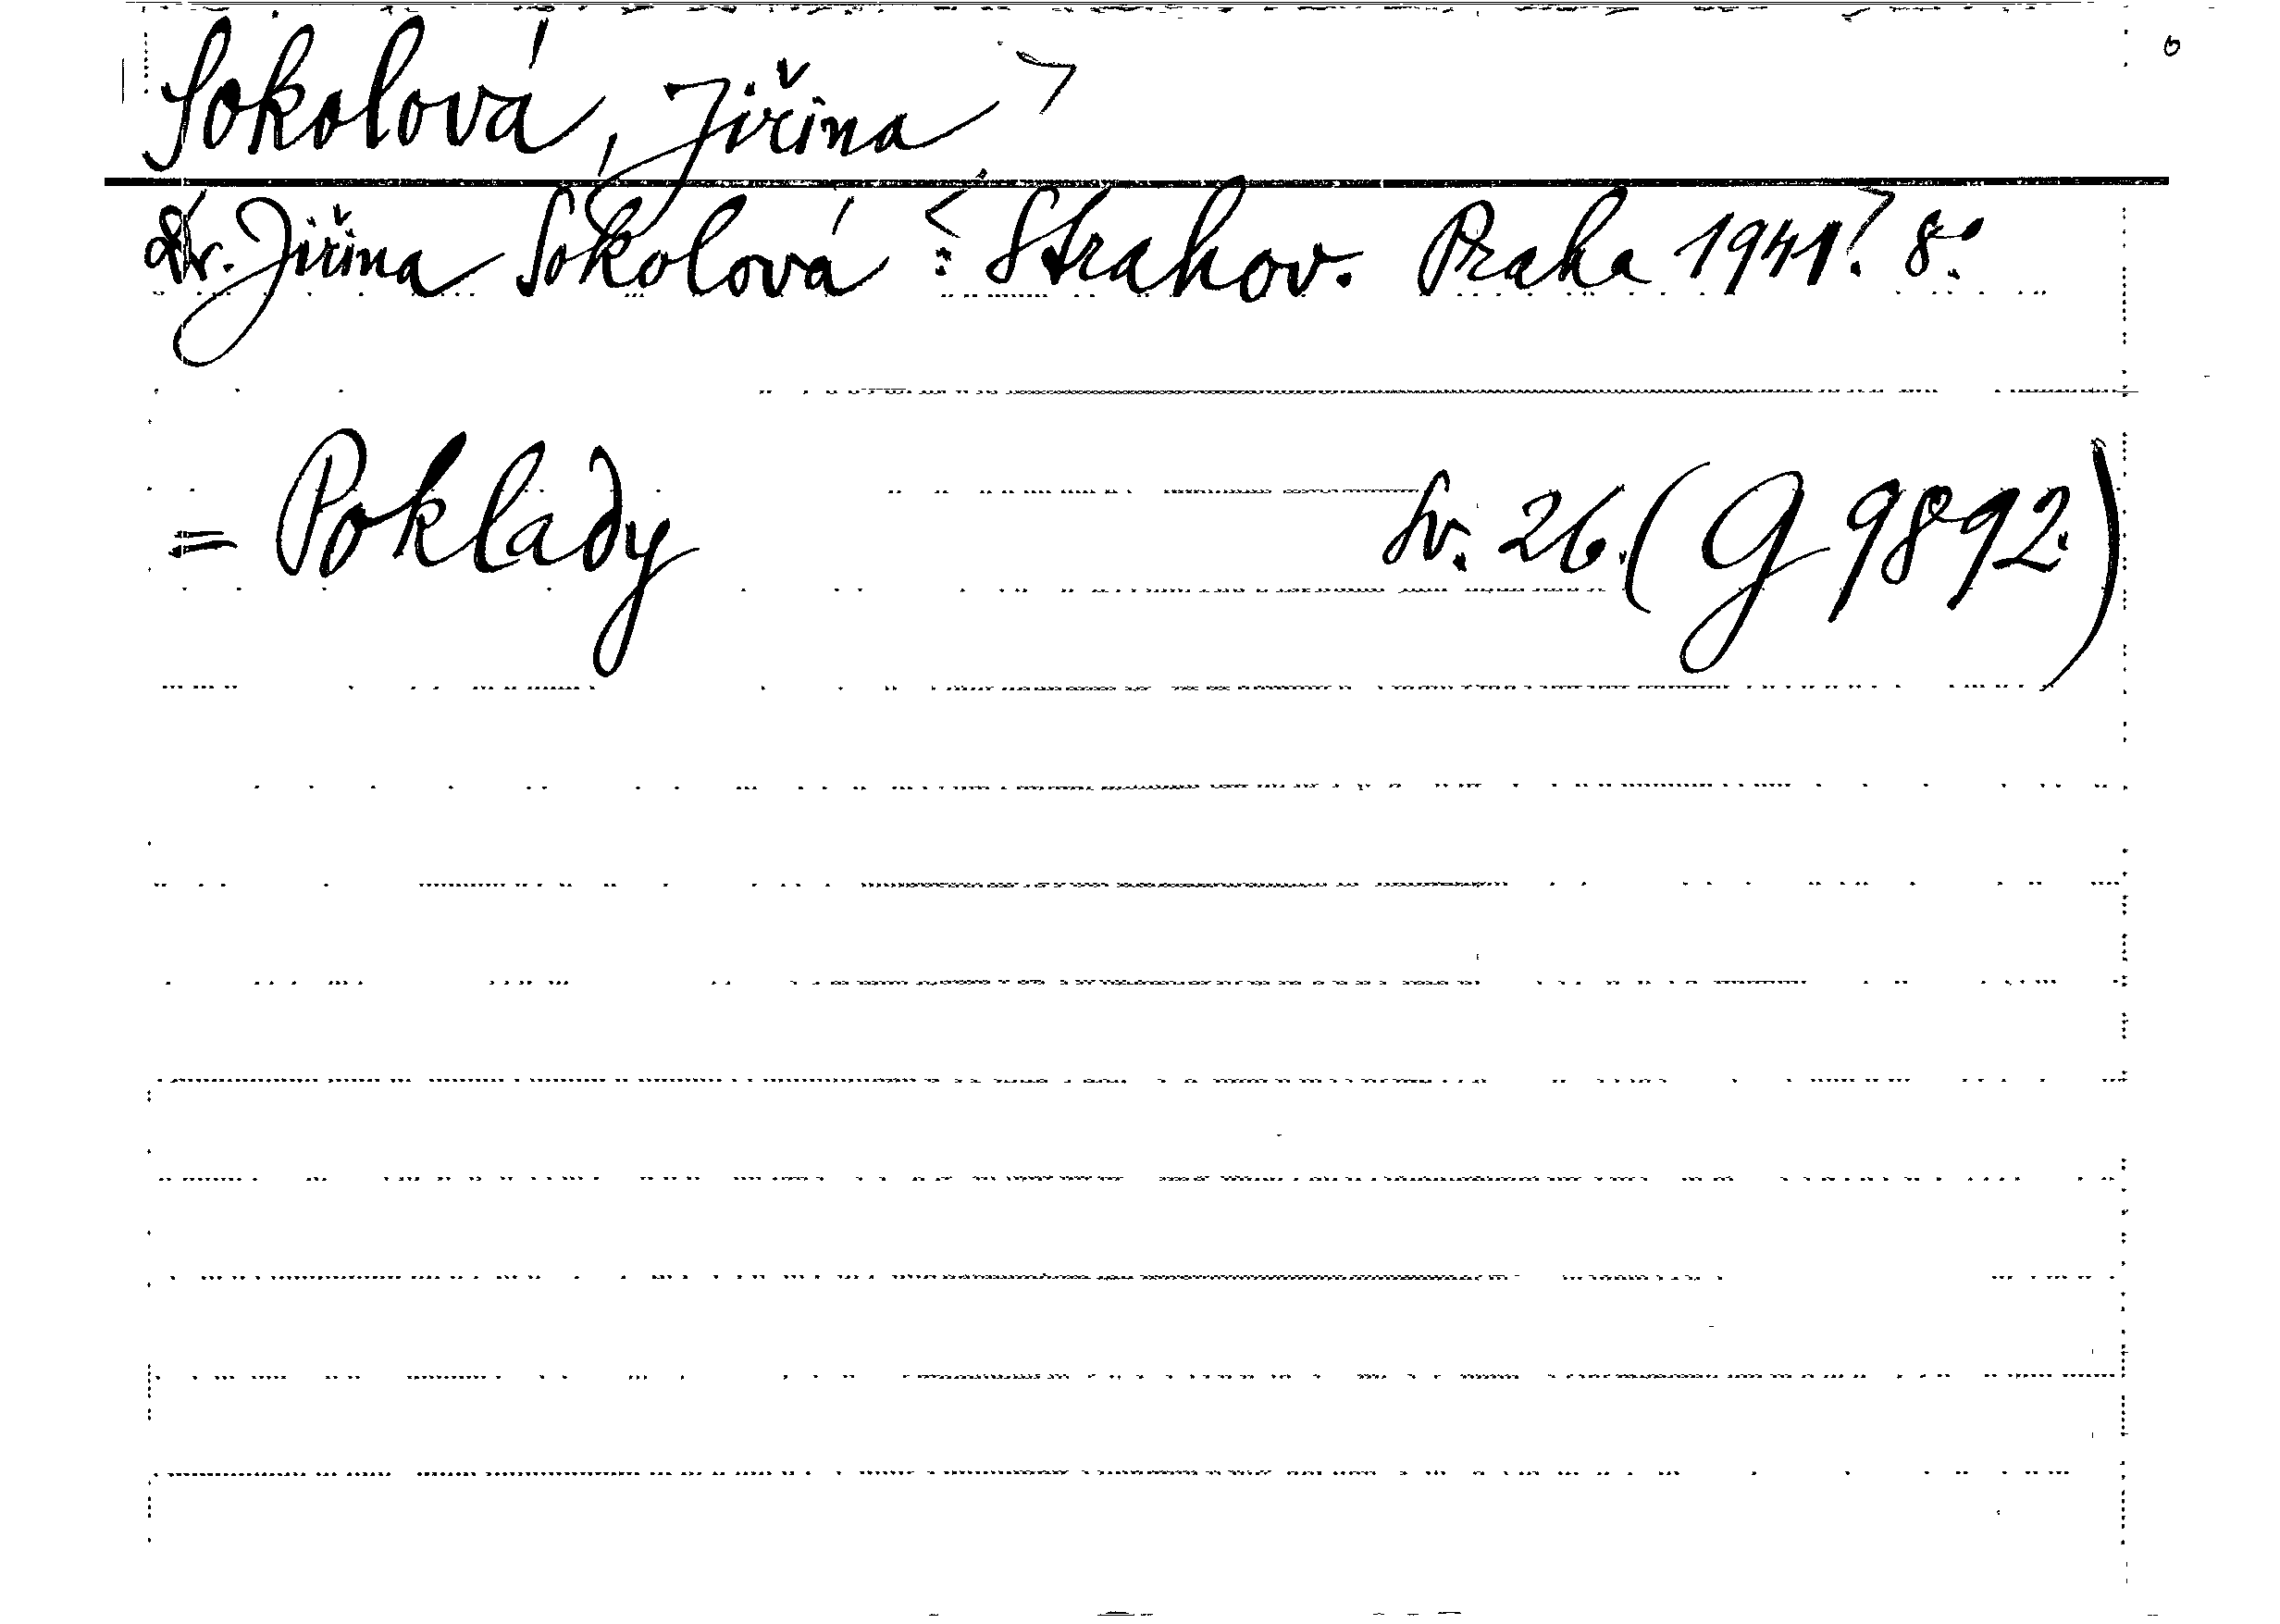 Sokolová, Jiřina
Dr. Jiřina Sokolová: Strahov. Praha 1941. 8.°
= Poklady sv. 26. (G 9892.)